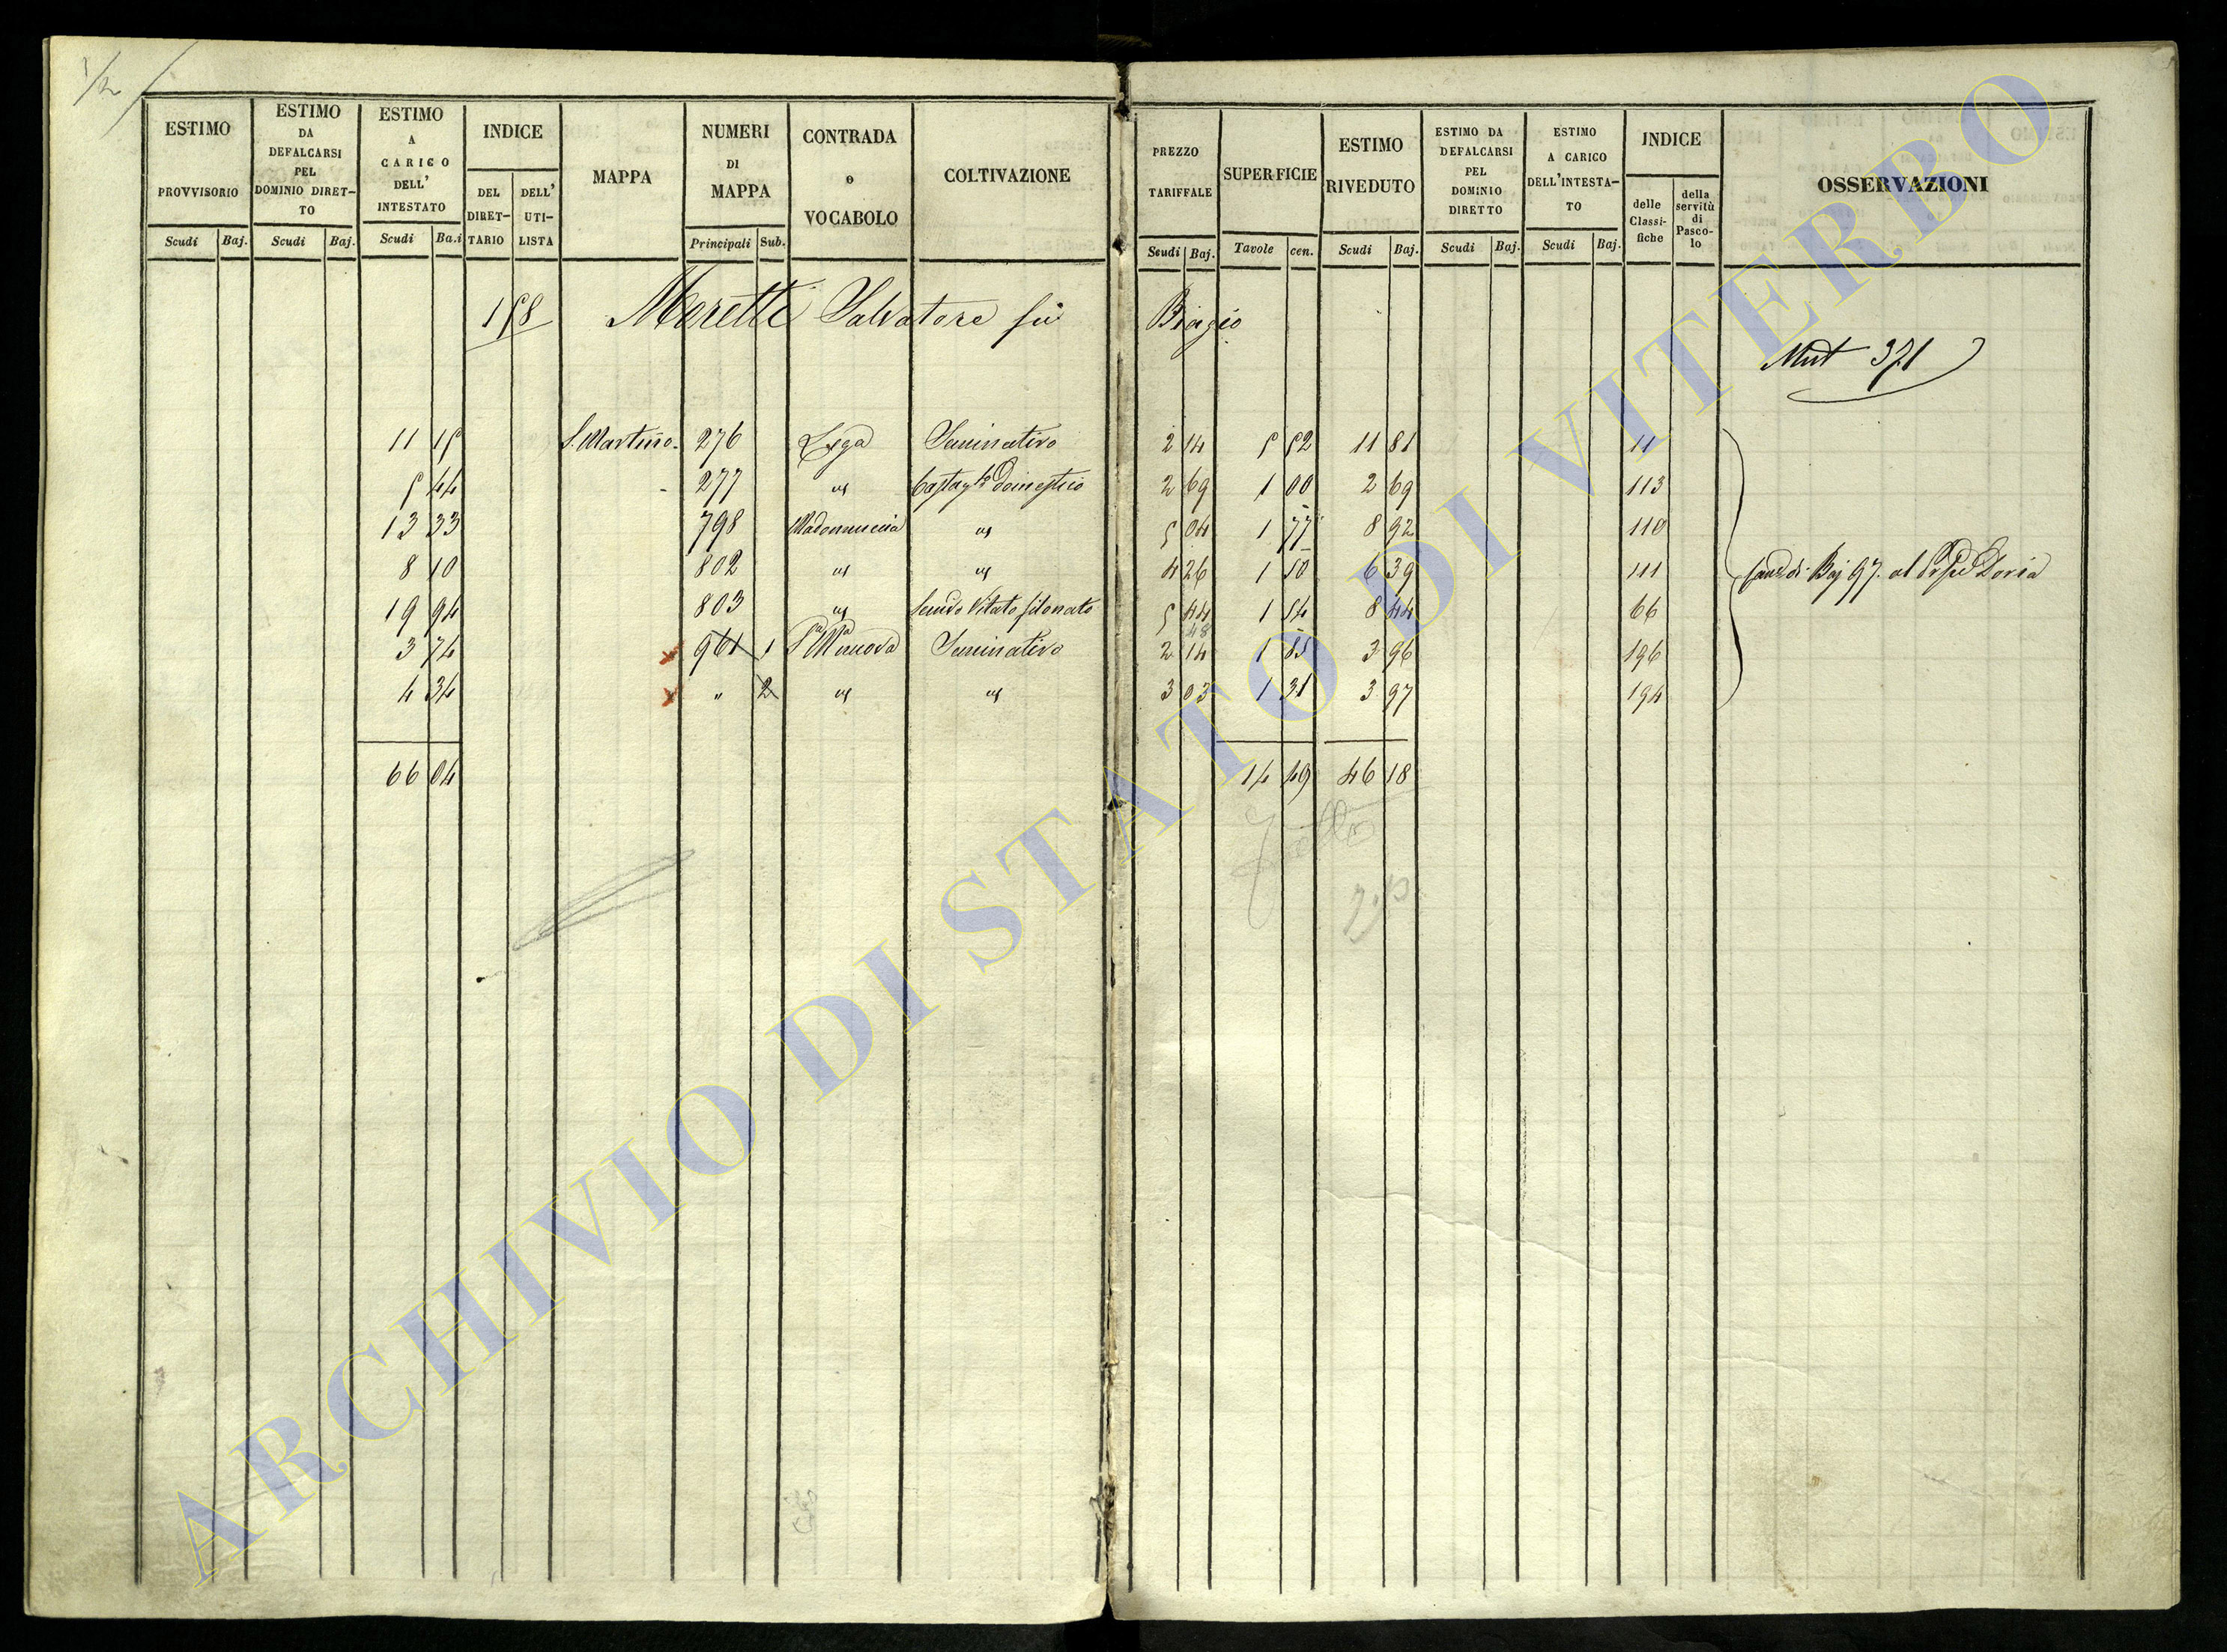 1/2
ESTIMO PROVVISORIO Scudi Baj.
ESTIMO DA DEFALCARSI PEL DOMINIO DIRET- TO Scudi Baj.
ESTIMO A CARICO DELL' INTESTATO Scudi Ba.i
INDICE DEL DIRET- TARIO DELL' UTI- LISTA
MAPPA
NUMERI DI MAPPA Principali Sub.
CONTRADA o VOCABOLO
COLTIVAZIONE
PREZZO TARIFFALE Scudi Baj.
SUPERFICIE Tavole cen.
ESTIMO RIVEDUTO Scudi Baj.
ESTIMO DA DEFALCARSI PEL DOMINIO DIRETTO Scudi Baj.
ESTIMO A CARICO DELL'INTESTA- TO Scudi Baj.
INDICE delle Classi- fiche della servitù di Pasco- lo
OSSERVAZIONI
158 Moretti Salvatore fù Biagio
Mut 371
11 15 S. Martino. 276 Lega Seminativo 2 14 5 52 11 81 11
5 44 277 " Castag.to Domestico 2 69 1 00 2 69 113
13 33 798 Madonnuccia " 5 04 1 77 8 92 110
8 10 802 " " 4 26 1 50 6 39 111 di Baj 97. al Doria
19 94 803 " Vitato 5 44 1 54 8 44 66
48
3 74 961 1 Nuova Seminativo 2 14 1 85 3 96 196
4 34 " 2 " " 3 03 1 31 3 97 194
66 04 14 49 46 18
ARCHIVIO DI STATO DI VITERBO